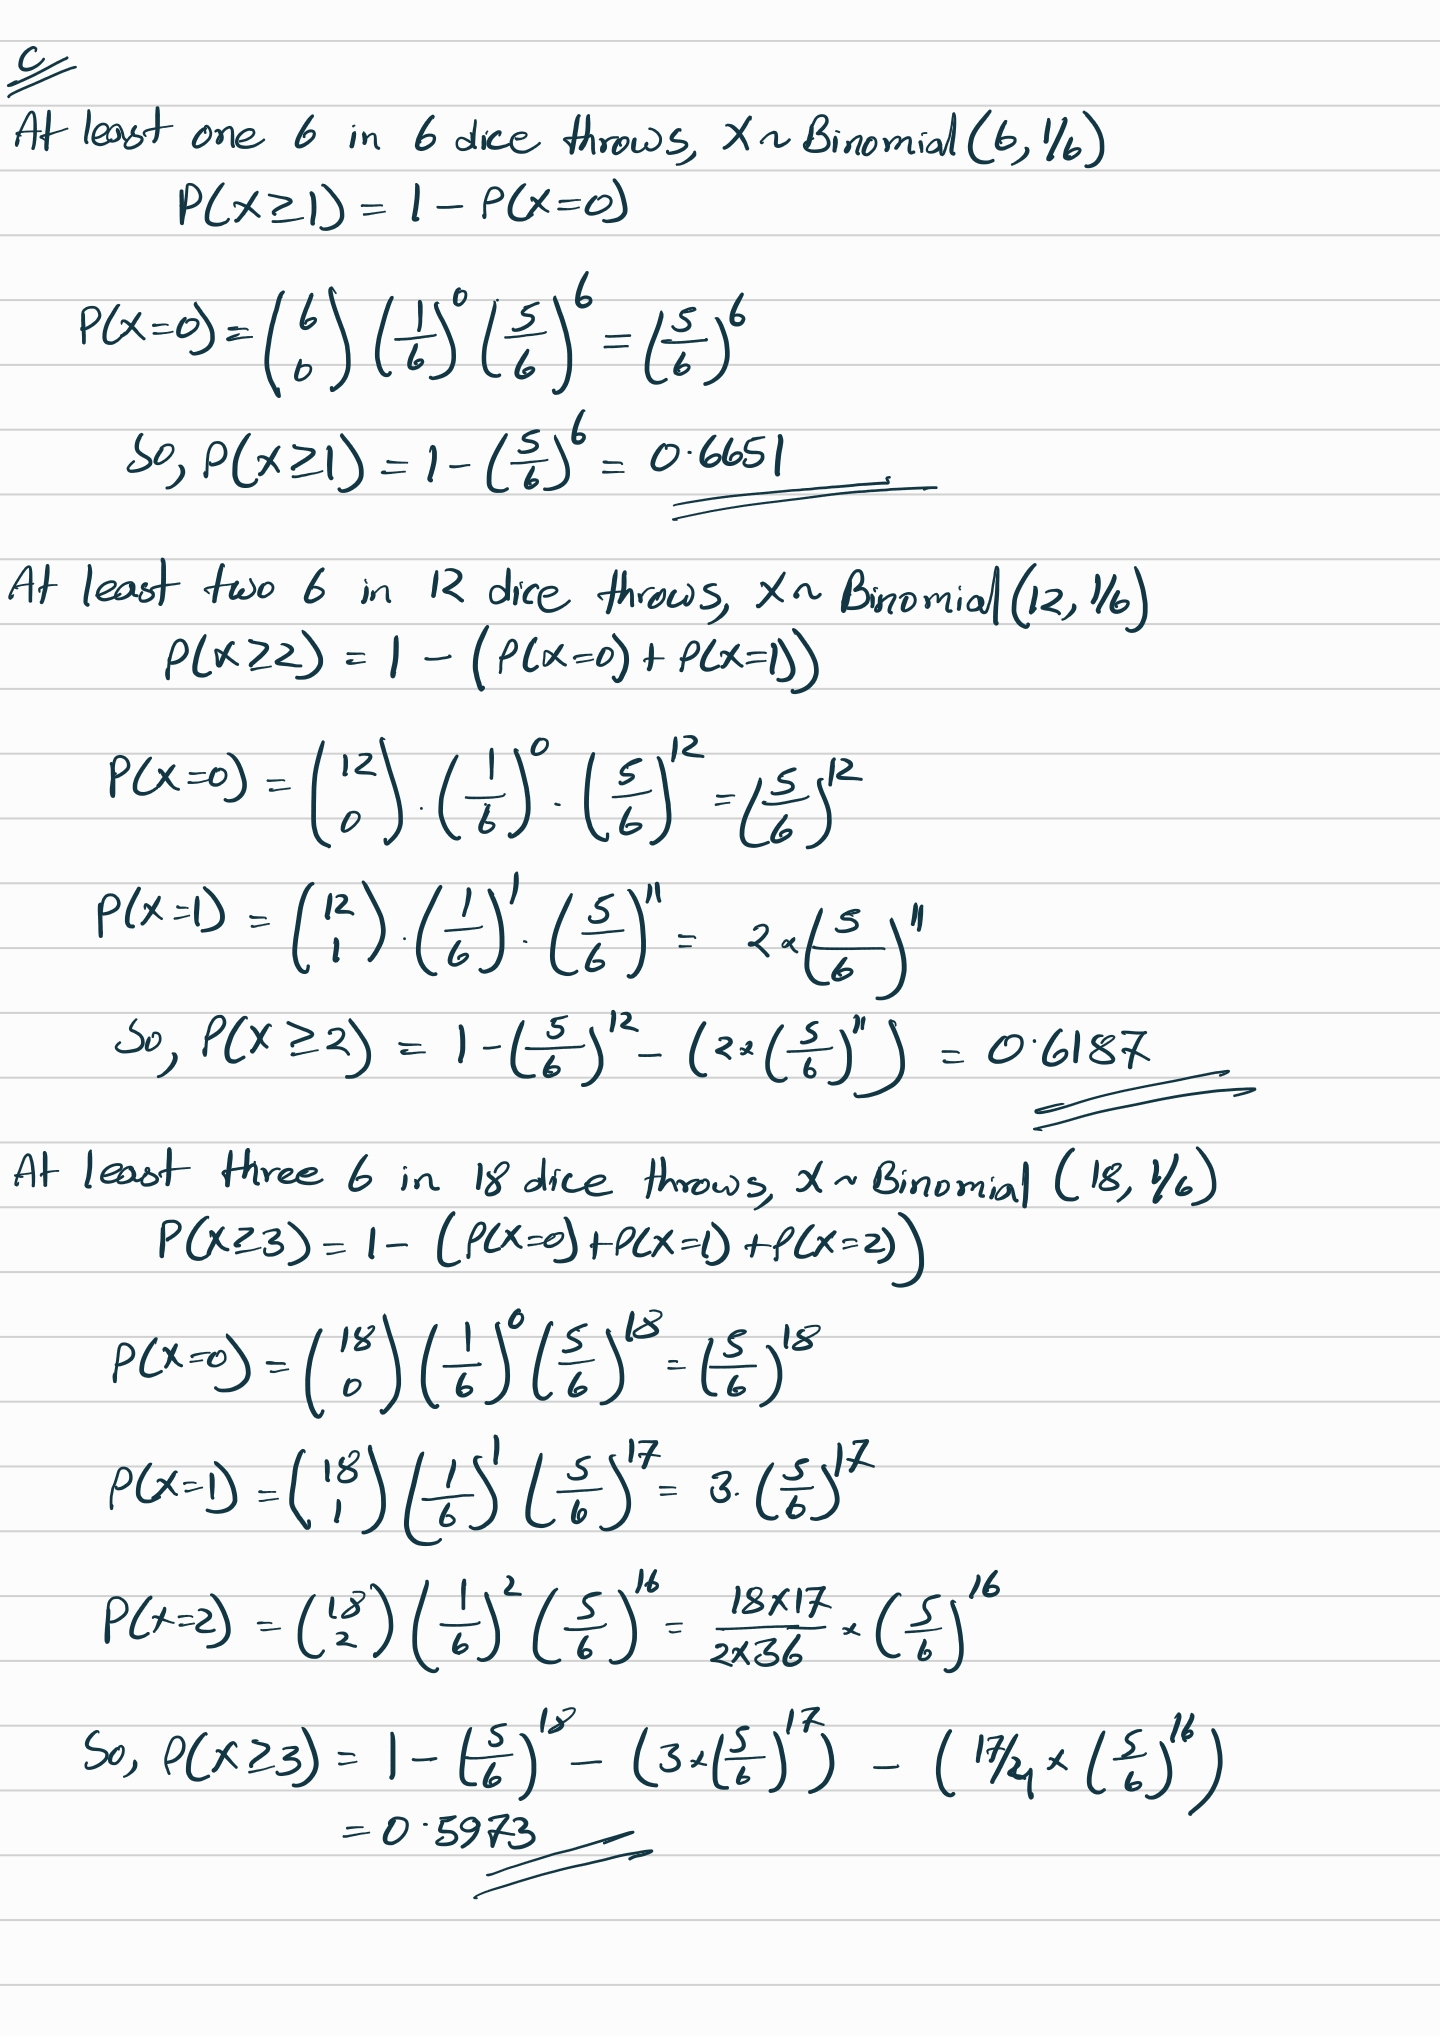 C
At least one 6 in 6 dice throws, X ~ Binomial (6, 1/6)
P(X ≥ 1) = 1 - P(X=0)
P(X=0) = (6 0) (1/6)^0 (5/6)^6 = (5/6)^6
So, P(X ≥ 1) = 1 - (5/6)^6 = 0.6651
At least two 6 in 12 dice throws, X ~ Binomial (12, 1/6)
P(X ≥ 2) = 1 - (P(X=0) + P(X=1))
P(X=0) = (12 0) . (1/6)^0 . (5/6)^12 = (5/6)^12
P(X=1) = (12 1) . (1/6)^1 . (5/6)^11 = 2 × (5/6)^11
So, P(X ≥ 2) = 1 - (5/6)^12 - (2 × (5/6)^11) = 0.6187
At least three 6 in 18 dice throws, X ~ Binomial (18, 1/6)
P(X ≥ 3) = 1 - (P(X=0) + P(X=1) + P(X=2))
P(X=0) = (18 0) (1/6)^0 (5/6)^18 = (5/6)^18
P(X=1) = (18 1) (1/6)^1 (5/6)^17 = 3. (5/6)^17
P(X=2) = (18 2) (1/6)^2 (5/6)^16 = 18×17/2×36 × (5/6)^16
So, P(X ≥ 3) = 1 - (5/6)^18 - (3 × (5/6)^17) - (17/4 × (5/6)^16)
= 0.5973